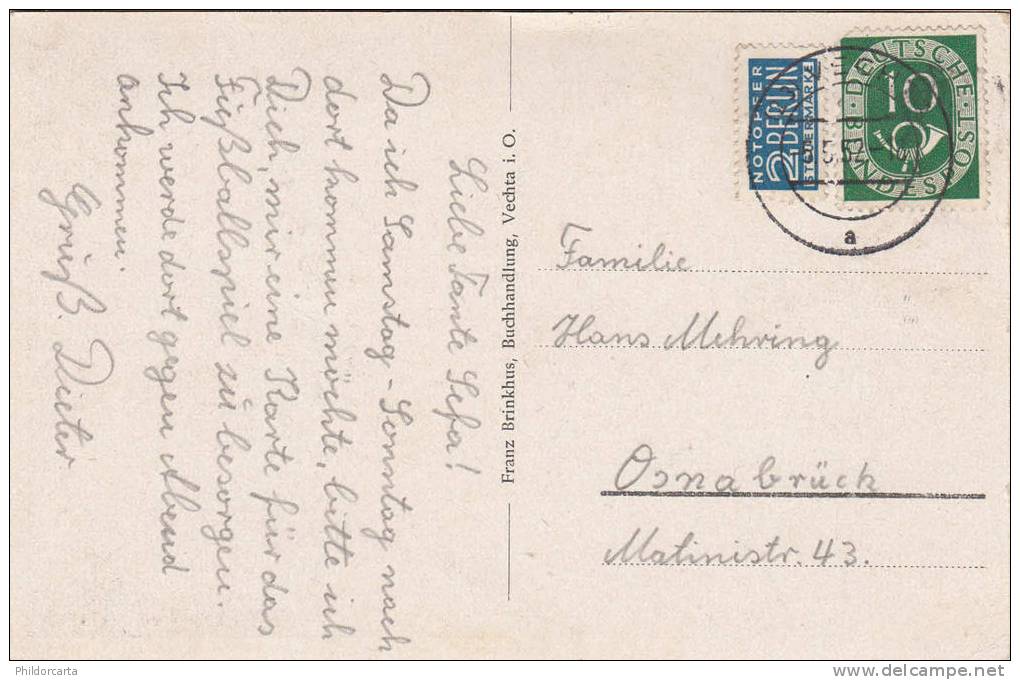 Liebe Tante Sefa!
Da ich Samstag - Sonntag nach
dort kommen möchte, bitte ich
Dich, mir eine Karte für das
Fußballspiel zu besorgen.
Ich werde dort gegen Abend
ankommen.
Gruß. Dieter
Franz Brinkhus, Buchhandlung, Vechta i. O.
NOTOPFER
2 BERLIN
STEUERMARKE
DEUTSCHE
BUNDESPOST
10
a
Familie
Hans Mehring
Osnabrück
Matinistr. 43.
Phildorcarta
www.delcampe.net